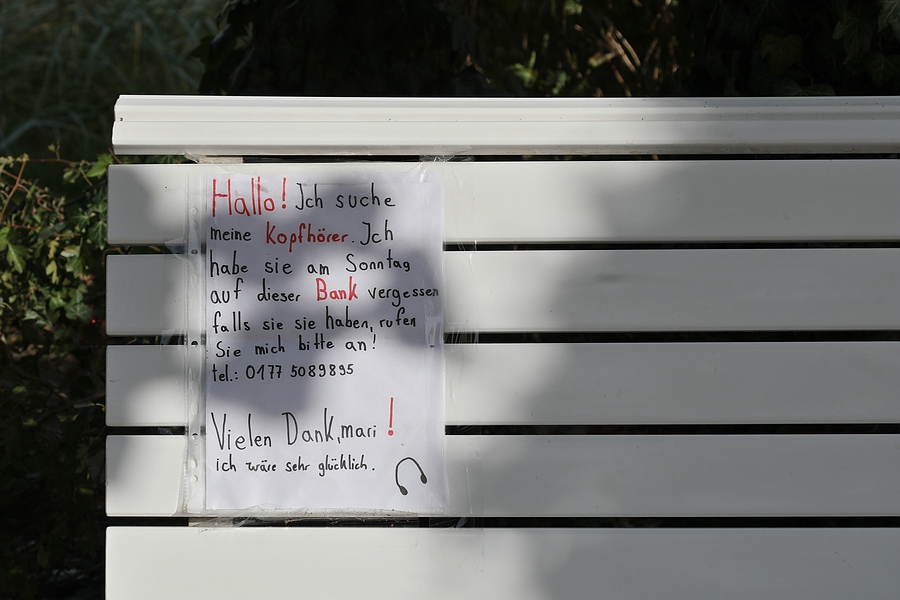 Hallo! Ich suche
meine Kopfhörer. Ich
habe sie am Sonntag
auf dieser Bank vergessen
falls sie sie haben, rufen
Sie mich bitte an!
tel.: 0177 5089895
Vielen Dank, mari!
ich wäre sehr glücklich.